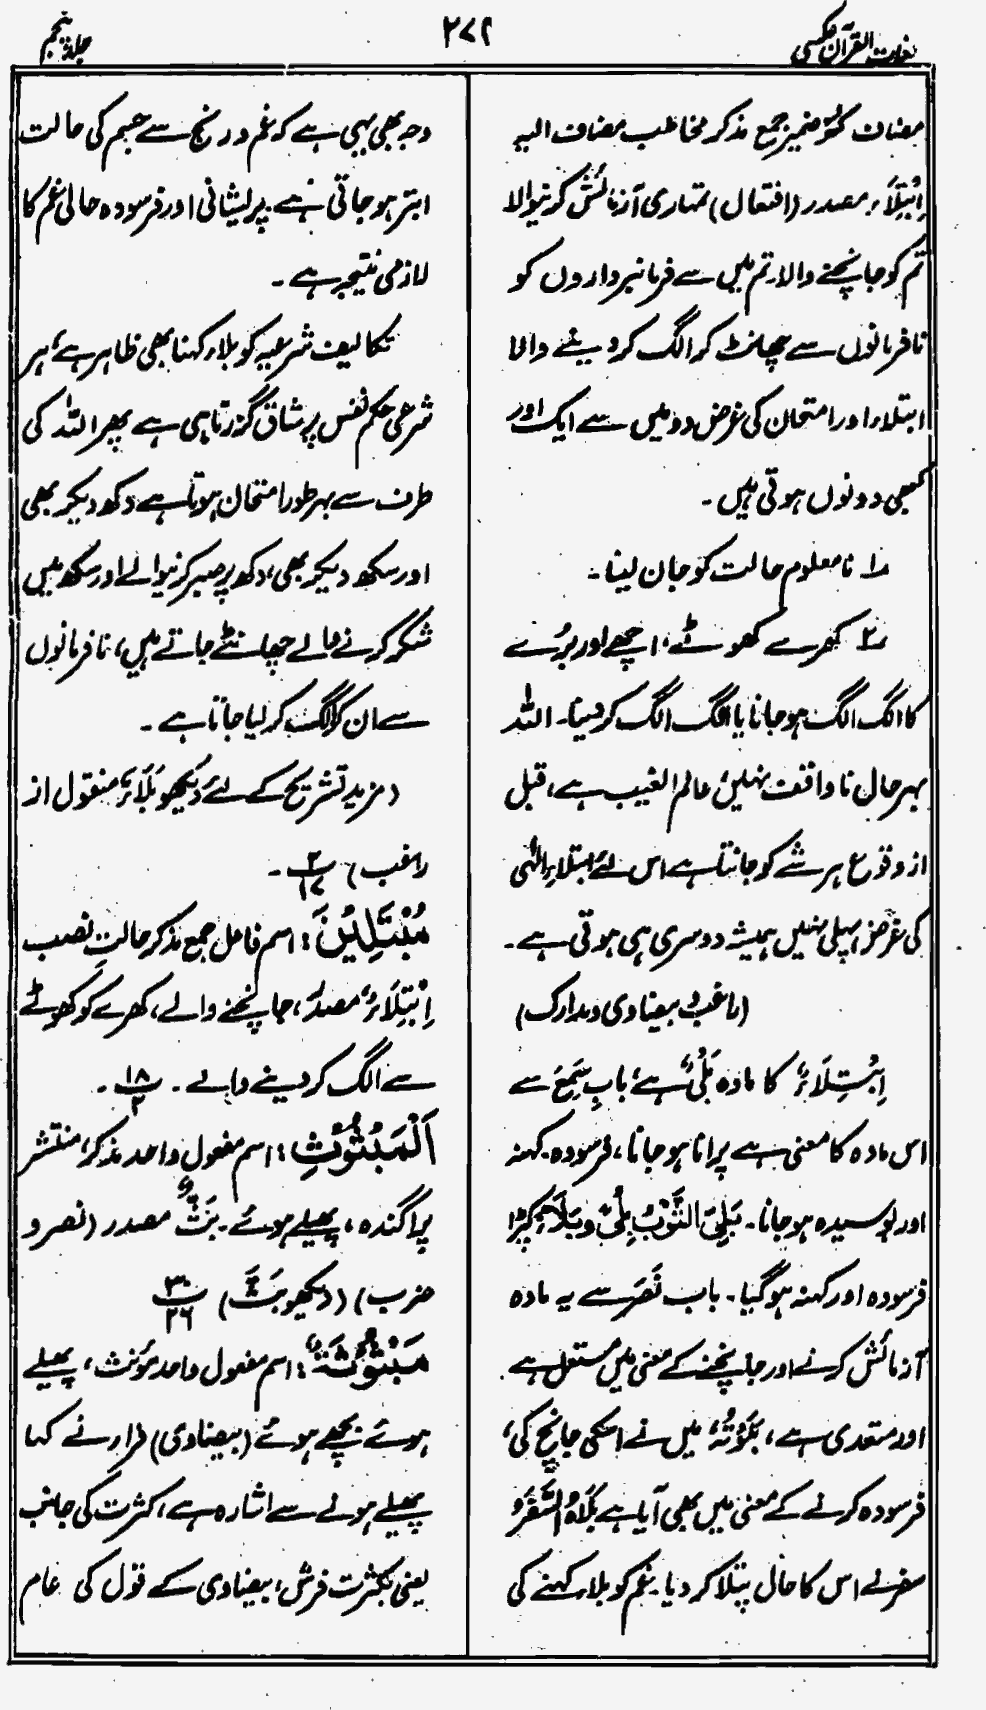 لغات القرآن عکسی
۲۷۲
جلد پنجم
مضاف کُمْ ضمیر جمع مذکر مخاطب مضاف الیہ
اِبْتِلَاءٌ مصدر (افتعال) تمہاری آزمائش کرنیوالا
تم کو جانچنے والا۔ تم میں سے فرمانبرداروں کو
نافرمانوں سے چھانٹ کر الگ کر دینے والا
ابتلاء اور امتحان کی غرض دو میں سے ایک اور
کبھی دونوں ہوتی ہیں۔
۱؎ نامعلوم حالت کو جان لینا۔
۲؎ کھرے کھوٹے، اچھے اور بُرے
کا الگ الگ ہو جانا یا الگ الگ کر دینا۔ اللہ
بہرحال ناواقف نہیں، عالم الغیب ہے، قبل
از وقوع ہر شے کو جانتا ہے اس لئے ابتلاءِ الٰہی
کی غرض پہلی نہیں ہمیشہ دوسری ہی ہوتی ہے۔
(راغب و بیضاوی و مدارک)
اِبْتِلَاءٌ کا مادہ بَلْیٌ ہے، بابِ سَمِعَ سے
اس مادہ کا معنی ہے پرانا ہو جانا، فرسودہ۔ کہنہ
اور بوسیدہ ہو جانا۔ بَلِیَ الثَّوْبُ بِلًی وَبَلَاءً کپڑا
فرسودہ اور کہنہ ہو گیا۔ باب نَصَرَ سے یہ مادہ
آزمائش کرنے اور جانچنے کے معنی میں مستعمل ہے
اور متعدی ہے، بَلَوْتُہٗ میں نے اسکی جانچ کی،
فرسودہ کرنے کے معنی میں بھی آیا ہے بَلَاہُ السَّفَرُ
سفر نے اس کا حال پتلا کر دیا۔ غم کو بلاء کہنے کی
وجہ بھی یہی ہے کہ غم و رنج سے جسم کی حالت
ابتر ہو جاتی ہے۔ پریشانی اور فرسودہ حالی غم کا
لازمی نتیجہ ہے۔
تکالیف شرعیہ کو بلاء کہنا بھی ظاہر ہے، ہر
شرعی حکم نفس پر شاق گزرتا ہی ہے پھر اللہ کی
طرف سے بہر طور امتحان ہوتا ہے دکھ دیکر بھی
اور سکھ دیکر بھی، دکھ پر صبر کرنیوالے اور سکھ میں
شکر کرنے والے چھانٹے جاتے ہیں، نافرمانوں
سے ان کو الگ کر لیا جاتا ہے۔
(مزید تشریح کے لئے دیکھو بَلَاءٌ، منقول از
راغب) ۲/۱۷۔
مُبْتَلِیْنَ: اسم فاعل جمع مذکر حالتِ نصب
اِبْتِلَاءٌ مصدر، جانچنے والے، کھرے کو کھوٹے
سے الگ کر دینے والے۔ ۱۸/۲۔
اَلْمَبْثُوْثِ: اسم مفعول واحد مذکر، منتشر
پراگندہ، پھیلے ہوئے۔ بَثٌّ مصدر (نصر و
ضرب) (دیکھو بَثَّ) ۳۰/۲۶
مَبْثُوْثَۃٌ: اسم مفعول واحد مؤنث، پھیلے
ہوئے بچھے ہوئے (بیضاوی) فرار نے کہا
پھیلے ہونے سے اشارہ ہے، کثرت کی جانب
یعنی بکثرت فرش، بیضاوی کے قول کی عام